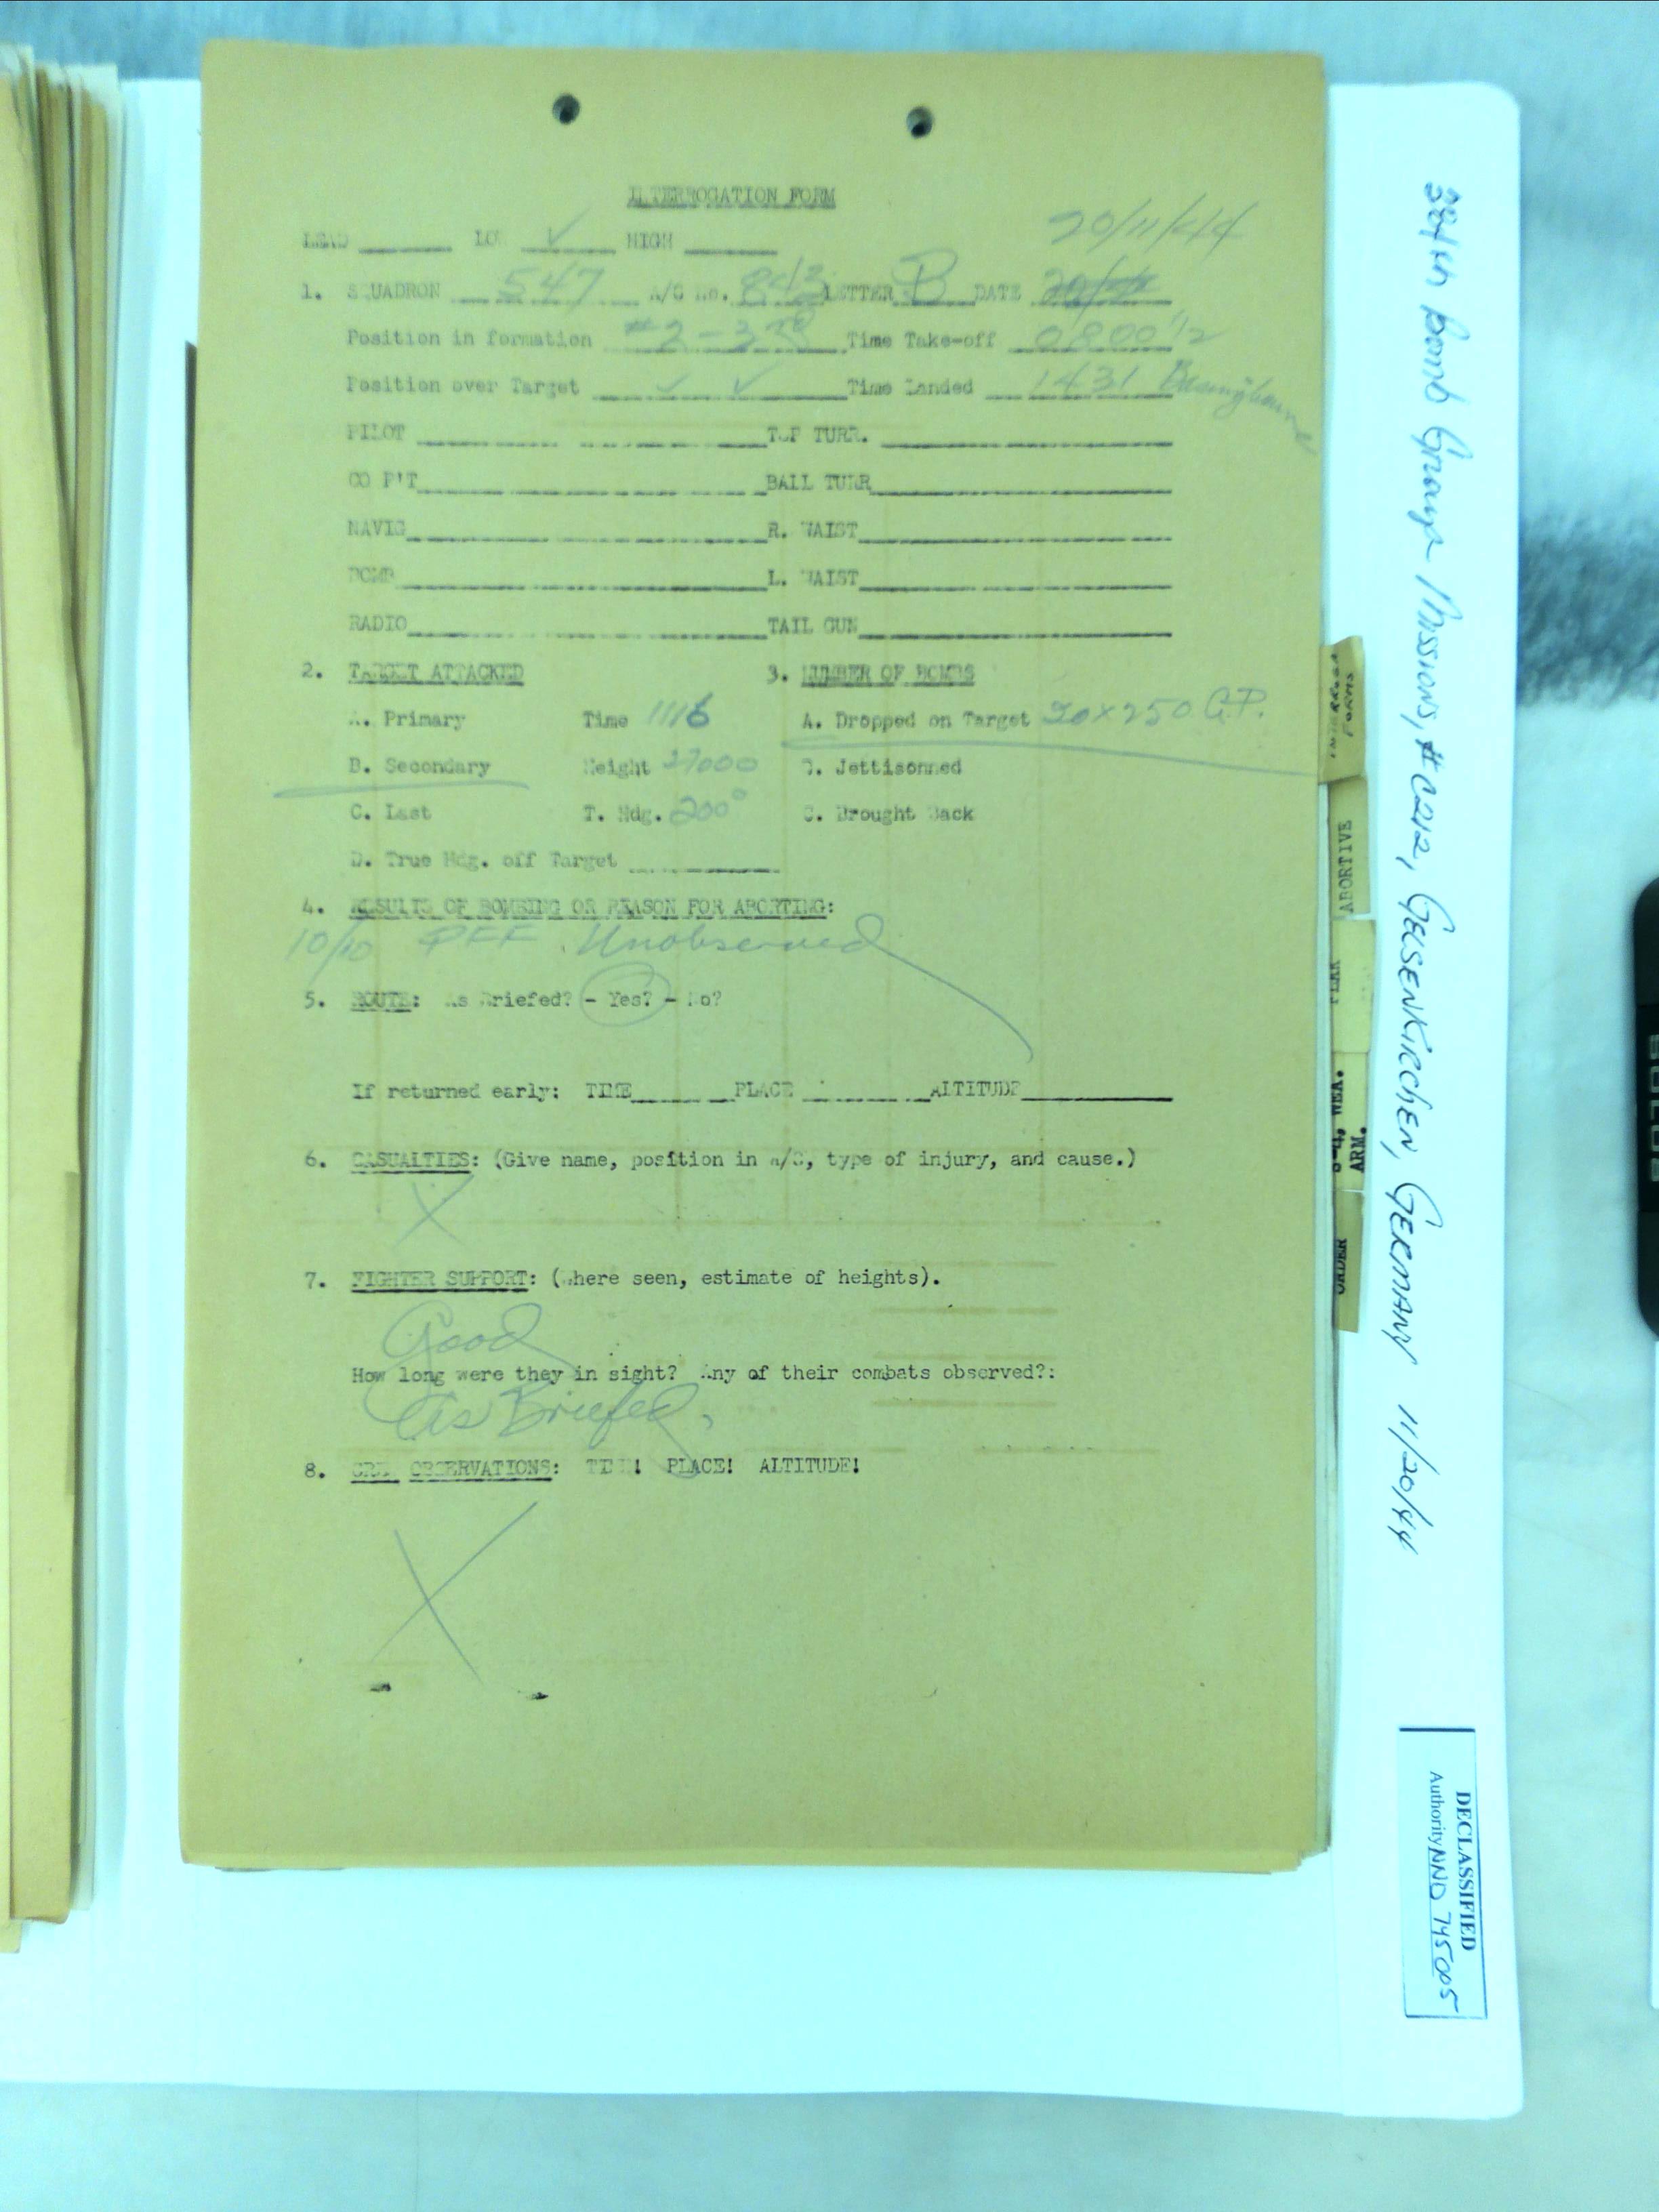 INTERROGATION FORM
LEAD LOW ✓ HIGH 20/11/44
1. SQUADRON 547 A/C No. 843 LETTER B DATE
Position in formation #2-3rd Time Take-off 0800 1/2
Position over Target ✓ ✓ Time Landed 1431
PILOT TOP TURR.
CO P'T BALL TURR
NAVIG R. WAIST
BOMB L. WAIST
RADIO TAIL GUN
2. TARGET ATTACKED 3. NUMBER OF BOMBS
A. Primary Time 1116 A. Dropped on Target 20x250 G.P.
B. Secondary Height 27000 B. Jettisonned
C. Last T. Hdg. 200° C. Brought Back
D. True Hdg. off Target
4. RESULTS OF BOMBING OR REASON FOR ABORTING:
10/10 PFF. Unobserved
5. ROUTE: As Briefed? - Yes? - No?
If returned early: TIME PLACE ALTITUDE
6. CASUALTIES: (Give name, position in A/C, type of injury, and cause.)
X
7. FIGHTER SUPPORT: (Where seen, estimate of heights).
Good
How long were they in sight? Any of their combats observed?:
As Briefed.
8. CREW OBSERVATIONS: TIME! PLACE! ALTITUDE!
X
384th Bomb Group Missions, #C212, GELSENKIRCHEN, GERMANY 11/20/44
FORMS
ABORTIVE
FLAK
WEA.
ARM.
ORDER
DECLASSIFIED
Authority NND 745005